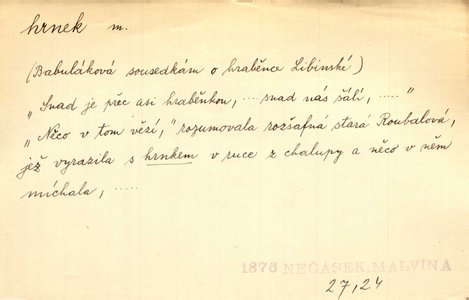 hrnek m.
(Babuláková sousedkám o hraběnce Libinské)
"Snad je přec asi hraběnkou, .... snad nás šálí, ....."
"Něco v tom vězí," rozumovala rozšafná stará Roubalová,
jež vyrazila s hrnkem v ruce z chalupy a něco v něm
míchala, .....
1876 NEČÁSEK, MALVÍNA
27,24